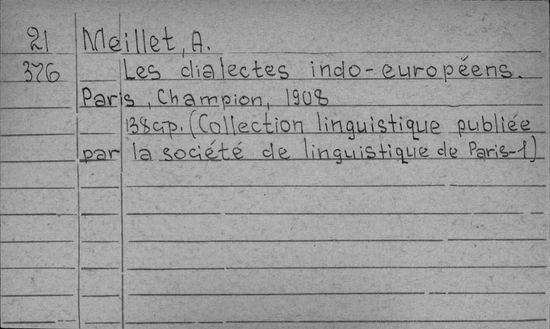 21 Meillet, A.
376 Les dialectes indo-européens.
Paris, Champion, 1908
138 cтр. (Collection linguistique publiée
par la société de linguistique de Paris-1)